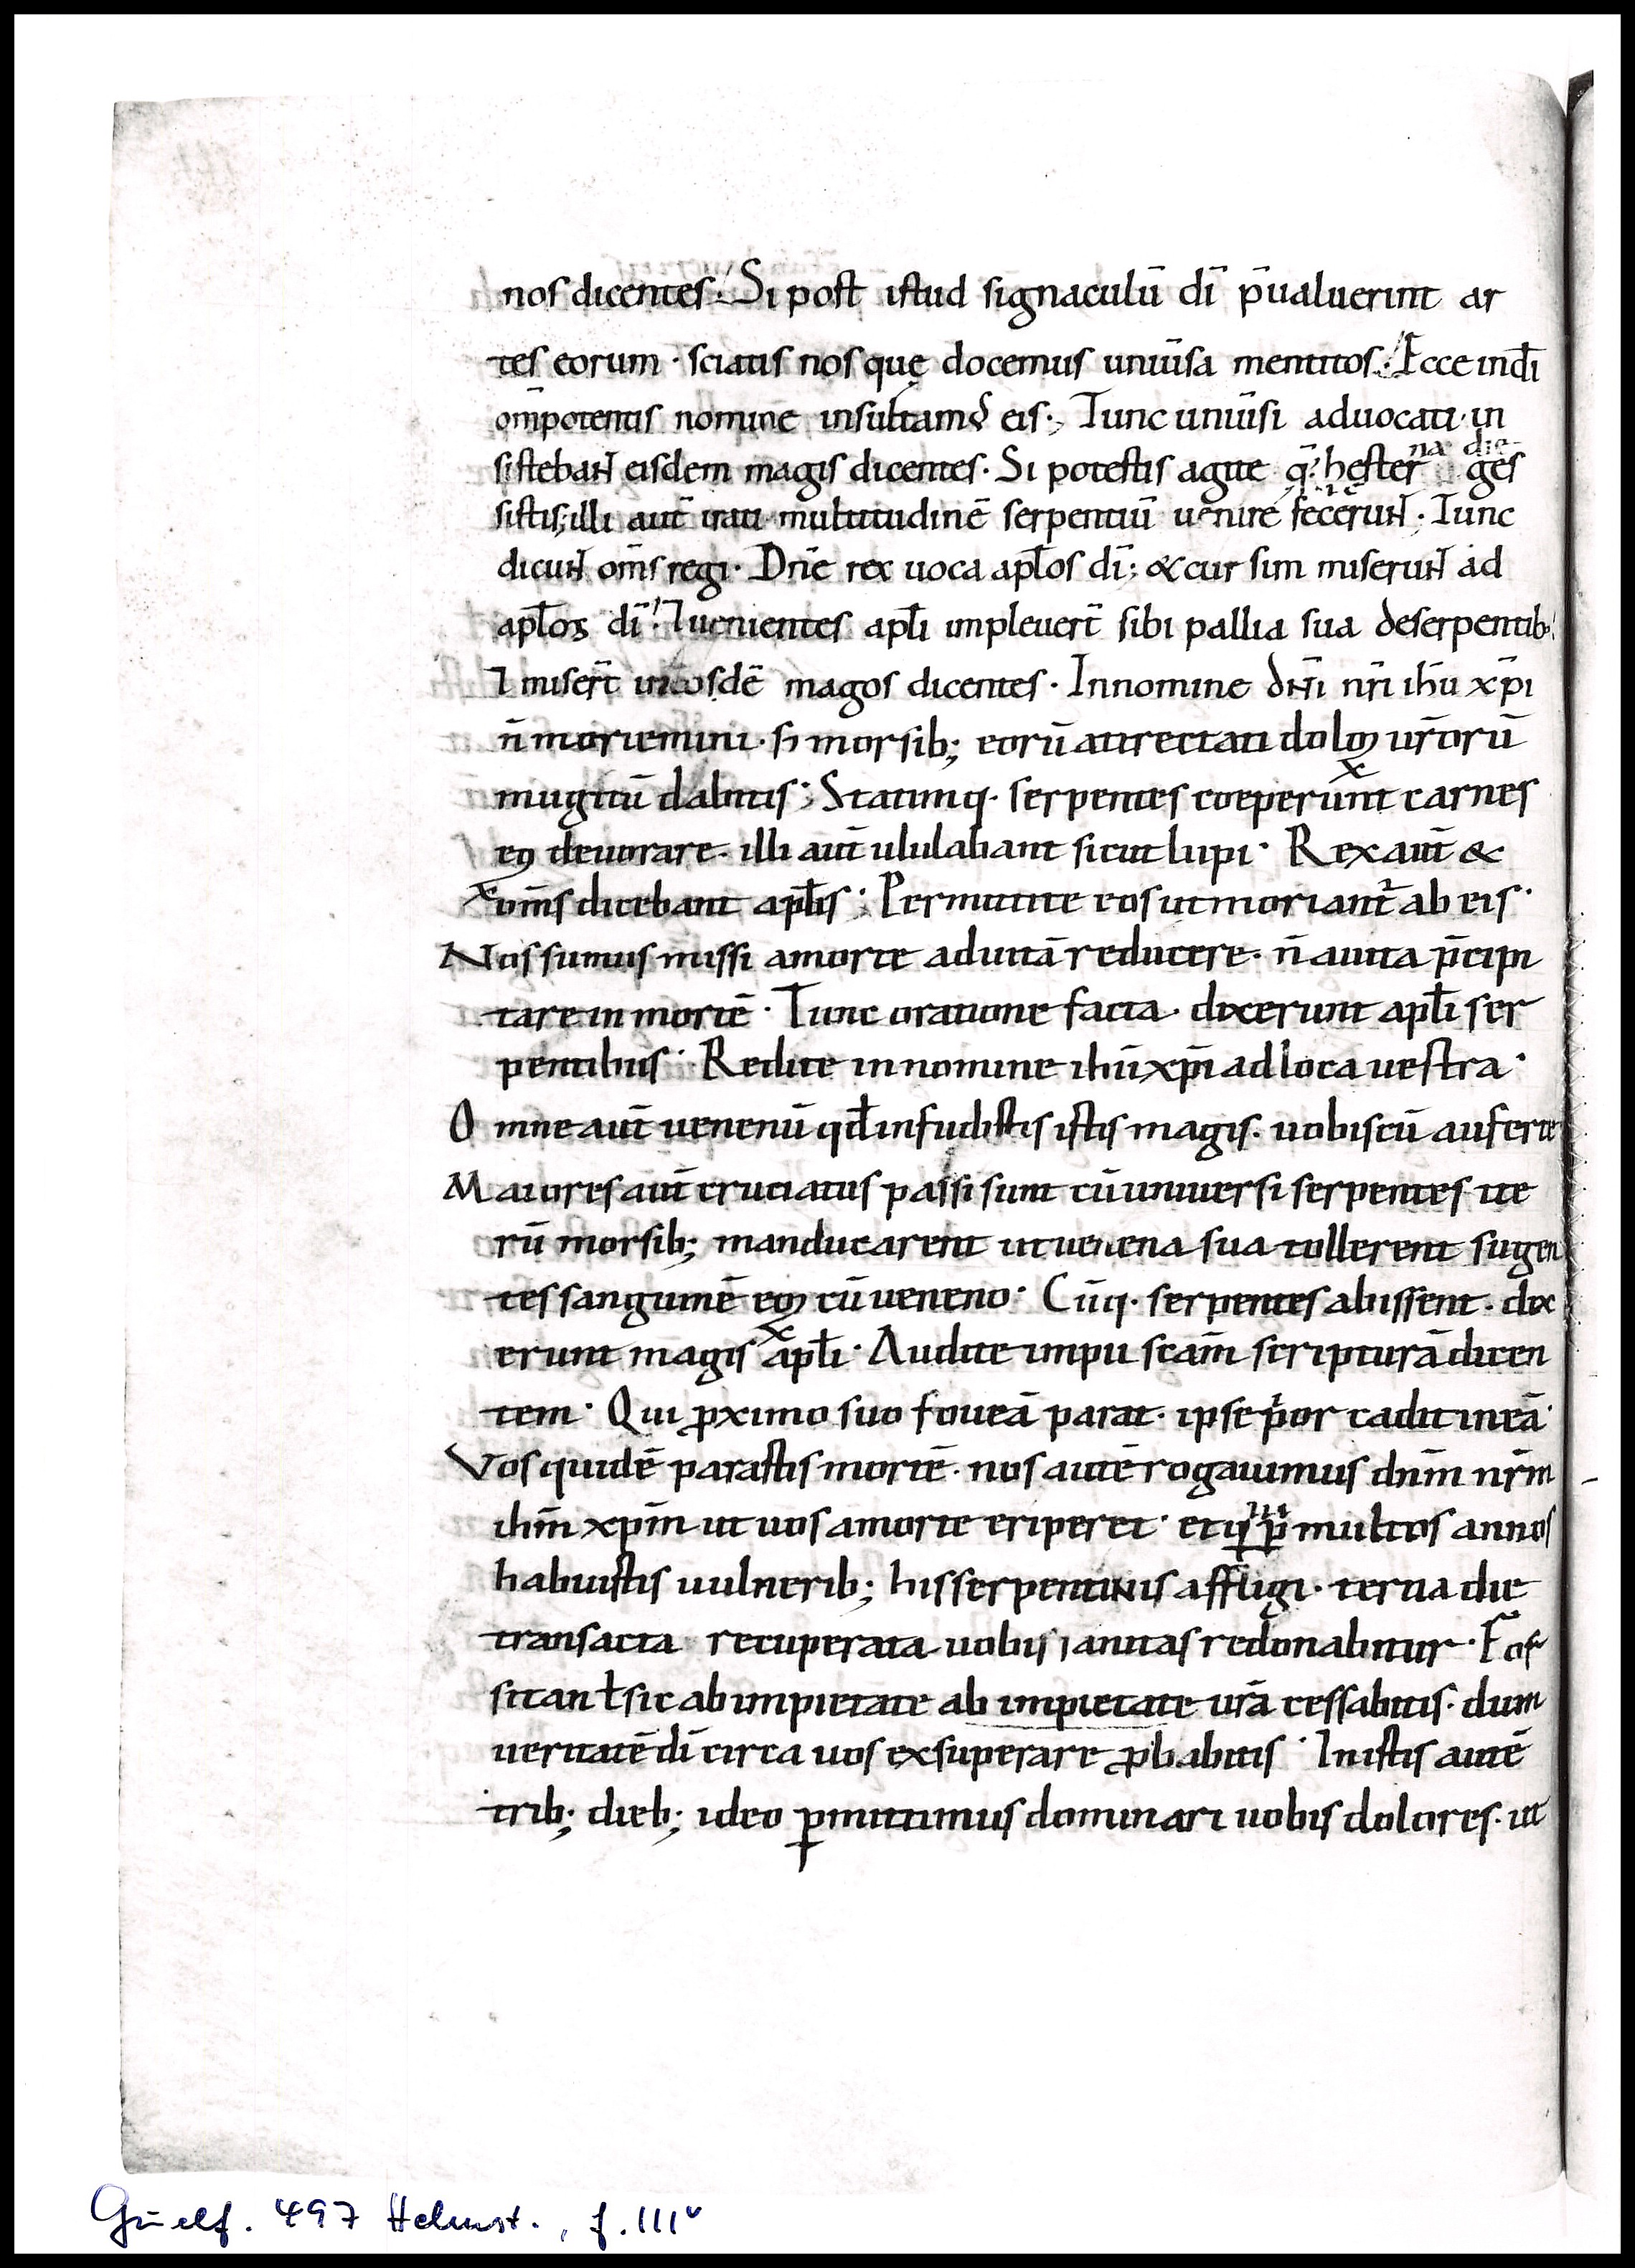 nos dicentes; Si post istud signaculū dī p̄ualuerint ar
tes eorum · sciatis nos quę docemus uniūsa mentitos; Ecce in dī
om̄potentis nomine insultam᷒ eis; Tunc uniūsi aduocati · in
sistebant eisdem magis dicentes · Si potestis agite q̄ hesterna die ges
sistis; illi aut̄ irati multitudinē serpentiū uenire fecerunt · Tunc
dicunt om̄s regi · Dn̄e rex uoca apł̄os dī; & cursim miserunt ad
apł̄os dī; ⁊ uenientes apł̄i impleuer̄t sibi pallia sua de serpentib;
⁊ miser̄t in eosdē magos dicentes · In nomine dn̄i nr̄i ih̄u xp̄i
n̄ moriemini · s; morsib; eorū attrectati doloꝝ ur̄orū
mugitū dabitis; Statimq· serpentes coeperunt carnes
eoꝝ deuorare · illi aut̄ ululabant sicut lupi · Rex aut̄ &
om̄s dicebant apł̄is; Permittite eos ut moriant᷑ ab eis ·
Nos sumus missi a morte ad uitā reducere · n̄ a uita p̄cipi
tare in mortē · Tunc oratione facta · dixerunt apł̄i ser
pentibus · Redite in nomine ih̄u xp̄i ad loca uestra ·
Omne aut̄ uenenū qđ infudistis istis magis · uobiscū auferte
Maiores aut̄ cruciatus passi sunt cū uniuersi serpentes ite
rū morsib; manducarent ut uenena sua tollerent sugen
tes sanguinē eoꝝ cū ueneno · Cūq· serpentes abissent · dix
erunt magis apł̄i · Audite impii sc̄am scripturā dicen
tem · Qui ꝓximo suo foueā parat · ipse p̍or cadit in eā ·
Vos quidē parastis mortē · nos autē rogauimus dn̄m nr̄m
ih̄m xp̄m ut uos a morte eriperet · et q ꝑ multos annos
habuistis uulnerib; his serpentinis affligi · terna die
transacta recuperata uobis sanitas redonabitur · For
sitan ł sic ab impietate ab impietate ur̄a cessabitis · dum
ueritatē dī circa uos exsuperare ꝓbabitis · In istis autē
trib; dieb; ideo ꝑmittimus dominari uobis dolores · ut
Guelf. 497 Helmst., f. 111v